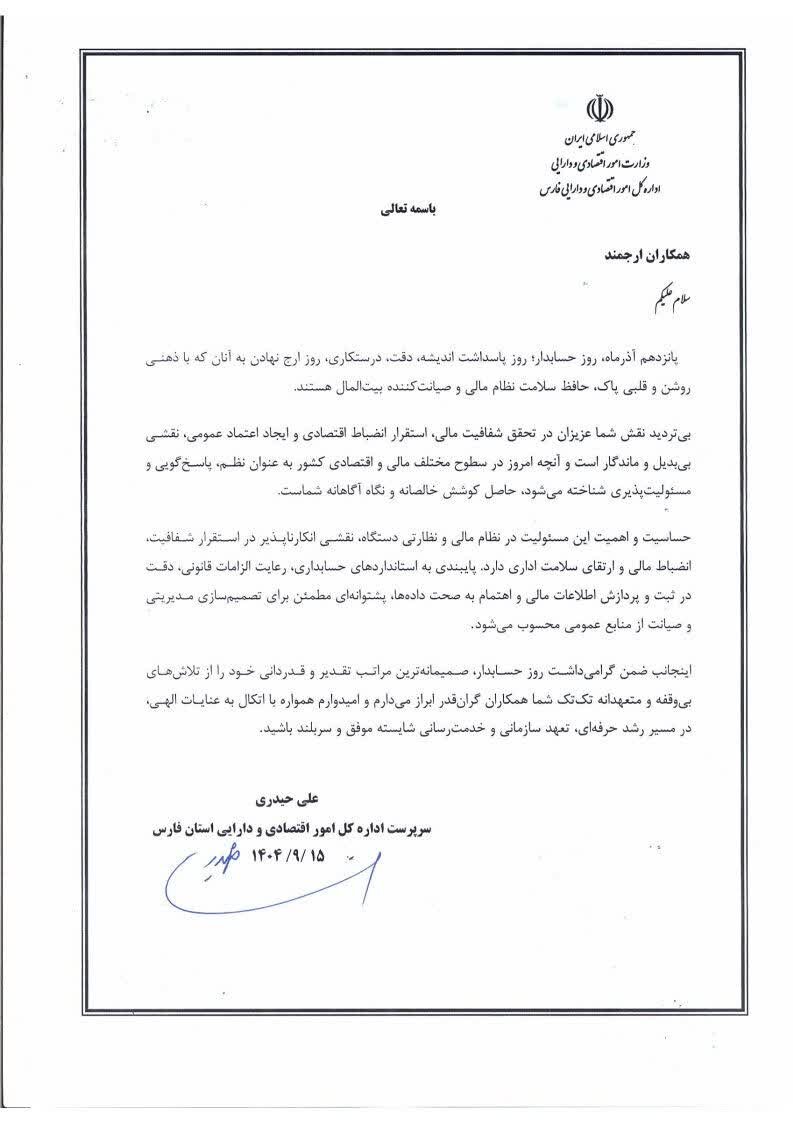 جمهوری اسلامی ایران
وزارت امور اقتصادی و دارایی
اداره کل امور اقتصادی و دارایی فارس
باسمه تعالی
همکاران ارجمند
سلام علیکم
پانزدهم آذرماه، روز حسابدار؛ روز پاسداشت اندیشه، دقت، درستکاری، روز ارج نهادن به آنان که با ذهنی
روشن و قلبی پاک، حافظ سلامت نظام مالی و صیانت‌کننده بیت‌المال هستند.
بی‌تردید نقش شما عزیزان در تحقق شفافیت مالی، استقرار انضباط اقتصادی و ایجاد اعتماد عمومی، نقشی
بی‌بدیل و ماندگار است و آنچه امروز در سطوح مختلف مالی و اقتصادی کشور به عنوان نظم، پاسخ‌گویی و
مسئولیت‌پذیری شناخته می‌شود، حاصل کوشش خالصانه و نگاه آگاهانه شماست.
حساسیت و اهمیت این مسئولیت در نظام مالی و نظارتی دستگاه، نقشی انکارناپذیر در استقرار شفافیت،
انضباط مالی و ارتقای سلامت اداری دارد. پایبندی به استانداردهای حسابداری، رعایت الزامات قانونی، دقت
در ثبت و پردازش اطلاعات مالی و اهتمام به صحت داده‌ها، پشتوانه‌ای مطمئن برای تصمیم‌سازی مدیریتی
و صیانت از منابع عمومی محسوب می‌شود.
اینجانب ضمن گرامی‌داشت روز حسابدار، صمیمانه‌ترین مراتب تقدیر و قدردانی خود را از تلاش‌های
بی‌وقفه و متعهدانه تک‌تک شما همکاران گران‌قدر ابراز می‌دارم و امیدوارم همواره با اتکال به عنایات الهی،
در مسیر رشد حرفه‌ای، تعهد سازمانی و خدمت‌رسانی شایسته موفق و سربلند باشید.
علی حیدری
سرپرست اداره کل امور اقتصادی و دارایی استان فارس
۱۴۰۴/۹/۱۵